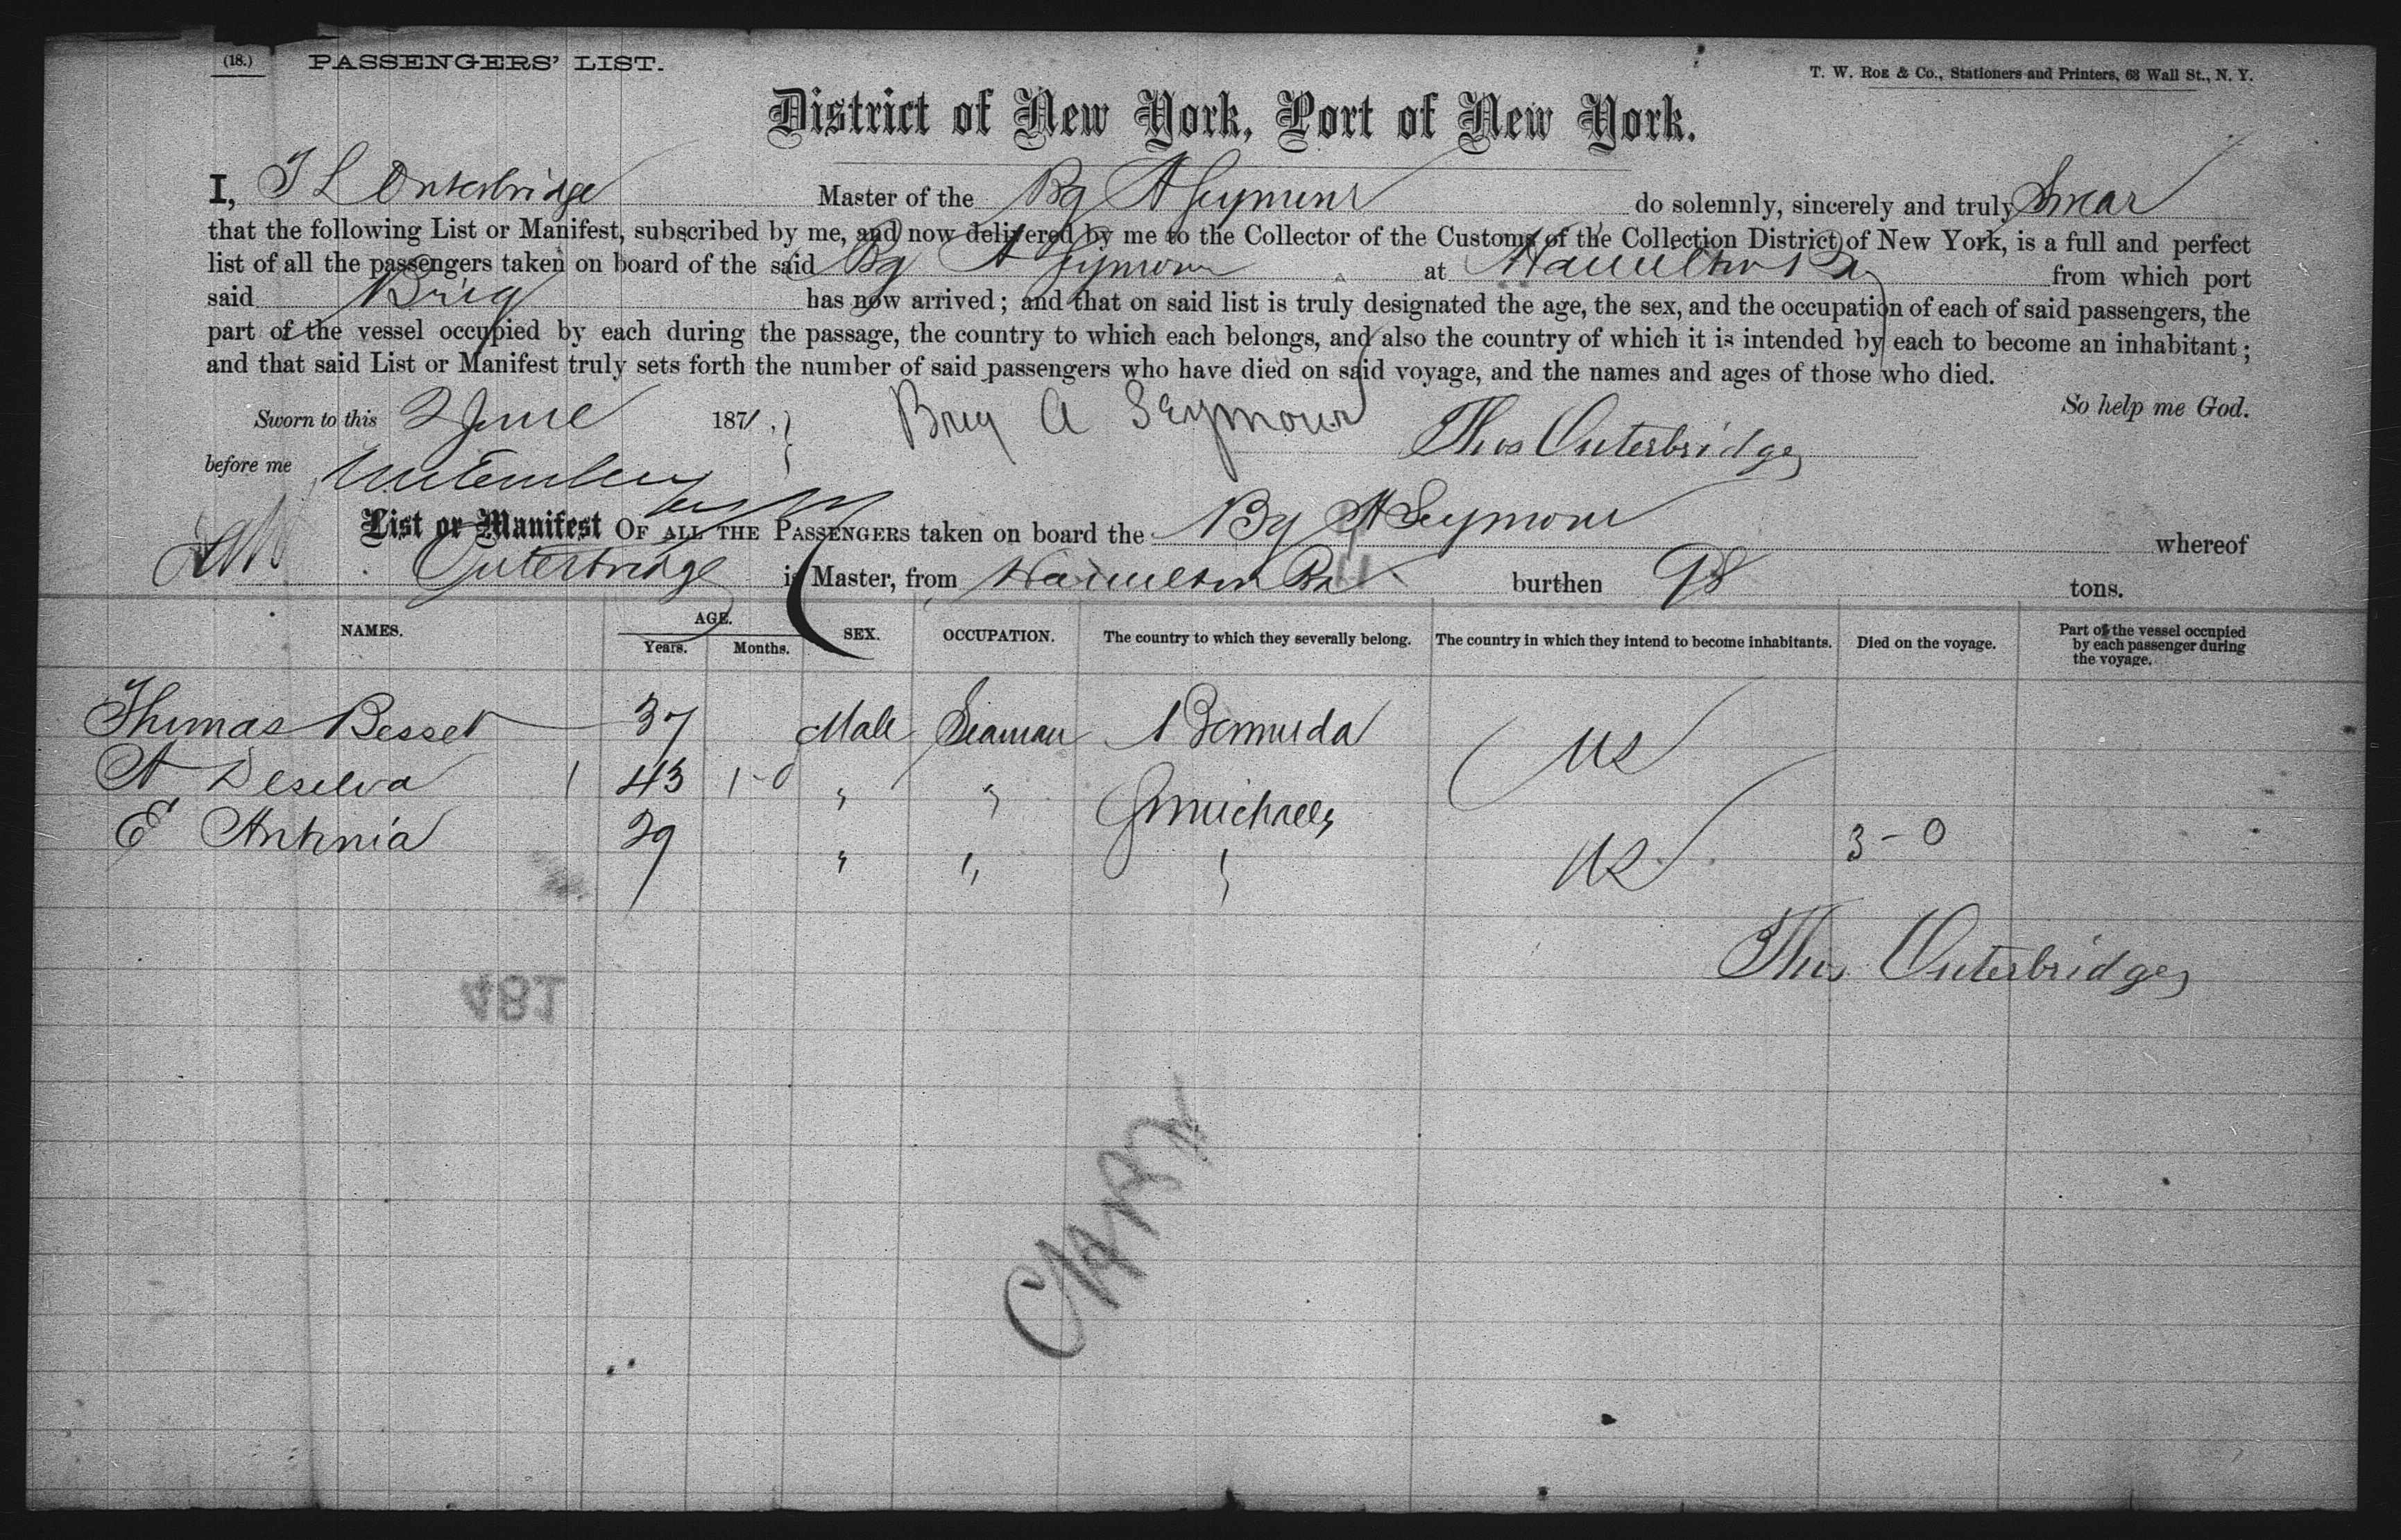 (18.) PASSENGERS' LIST.
T. W. Roe & Co., Stationers and Printers, 63 Wall St., N. Y.
District of New York, Port of New York.
I, T L Outerbridge Master of the Bg A Seymour do solemnly, sincerely and truly Swear
that the following List or Manifest, subscribed by me, and now delivered by me to the Collector of the Customs of the Collection District of New York, is a full and perfect
list of all the passengers taken on board of the said Bg A Seymour at Hamilton Ba from which port
said Brig has now arrived; and that on said list is truly designated the age, the sex, and the occupation of each of said passengers, the
part of the vessel occupied by each during the passage, the country to which each belongs, and also the country of which it is intended by each to become an inhabitant;
and that said List or Manifest truly sets forth the number of said passengers who have died on said voyage, and the names and ages of those who died.
So help me God.
Sworn to this 2 June 1871. Brig A Seymour
Thos Outerbridge
before me
List or Manifest OF ALL THE PASSENGERS taken on board the Bg A Seymour whereof
Outerbridge is Master, from Hamilton Ba burthen 98 tons.
NAMES. AGE. Years. Months. SEX. OCCUPATION. The country to which they severally belong. The country in which they intend to become inhabitants. Died on the voyage. Part of the vessel occupied by each passenger during the voyage.
Thomas Besset 37 Male Seaman Bermuda US
A Desilva 1 43 1-0 " " St Michaels
E Antonia 29 " " " US 3-0
Thos Outerbridge
481